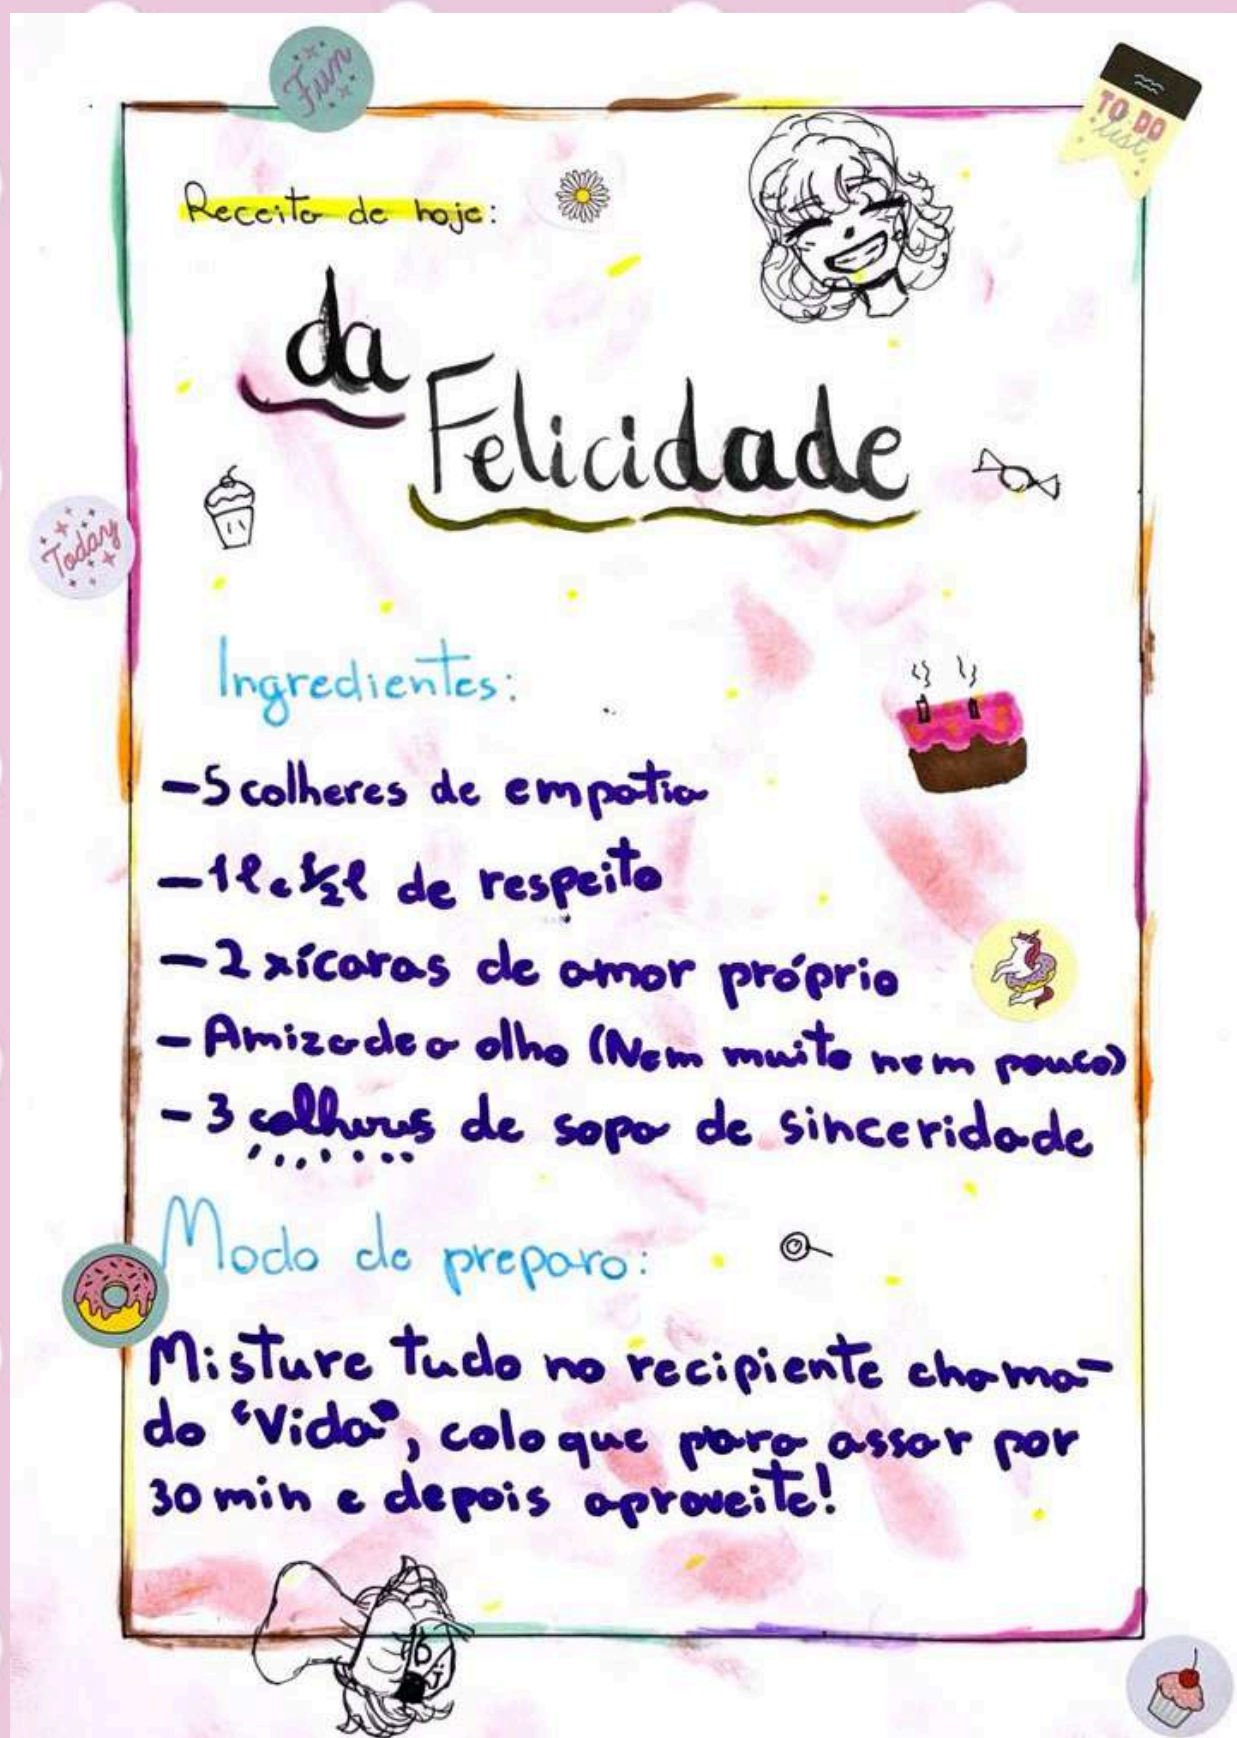 Fun
TO DO
list
Receita de hoje:
da
Felicidade
Today
Ingredientes:
-5 colheres de empatia
-1l e ½l de respeito
-2 xícaras de amor próprio
- Amizade a olho (Nem muito nem pouco)
- 3 colheres de sopa de sinceridade
Modo de preparo:
Misture tudo no recipiente chama-
do "Vida", coloque para assar por
30 min e depois aproveite!